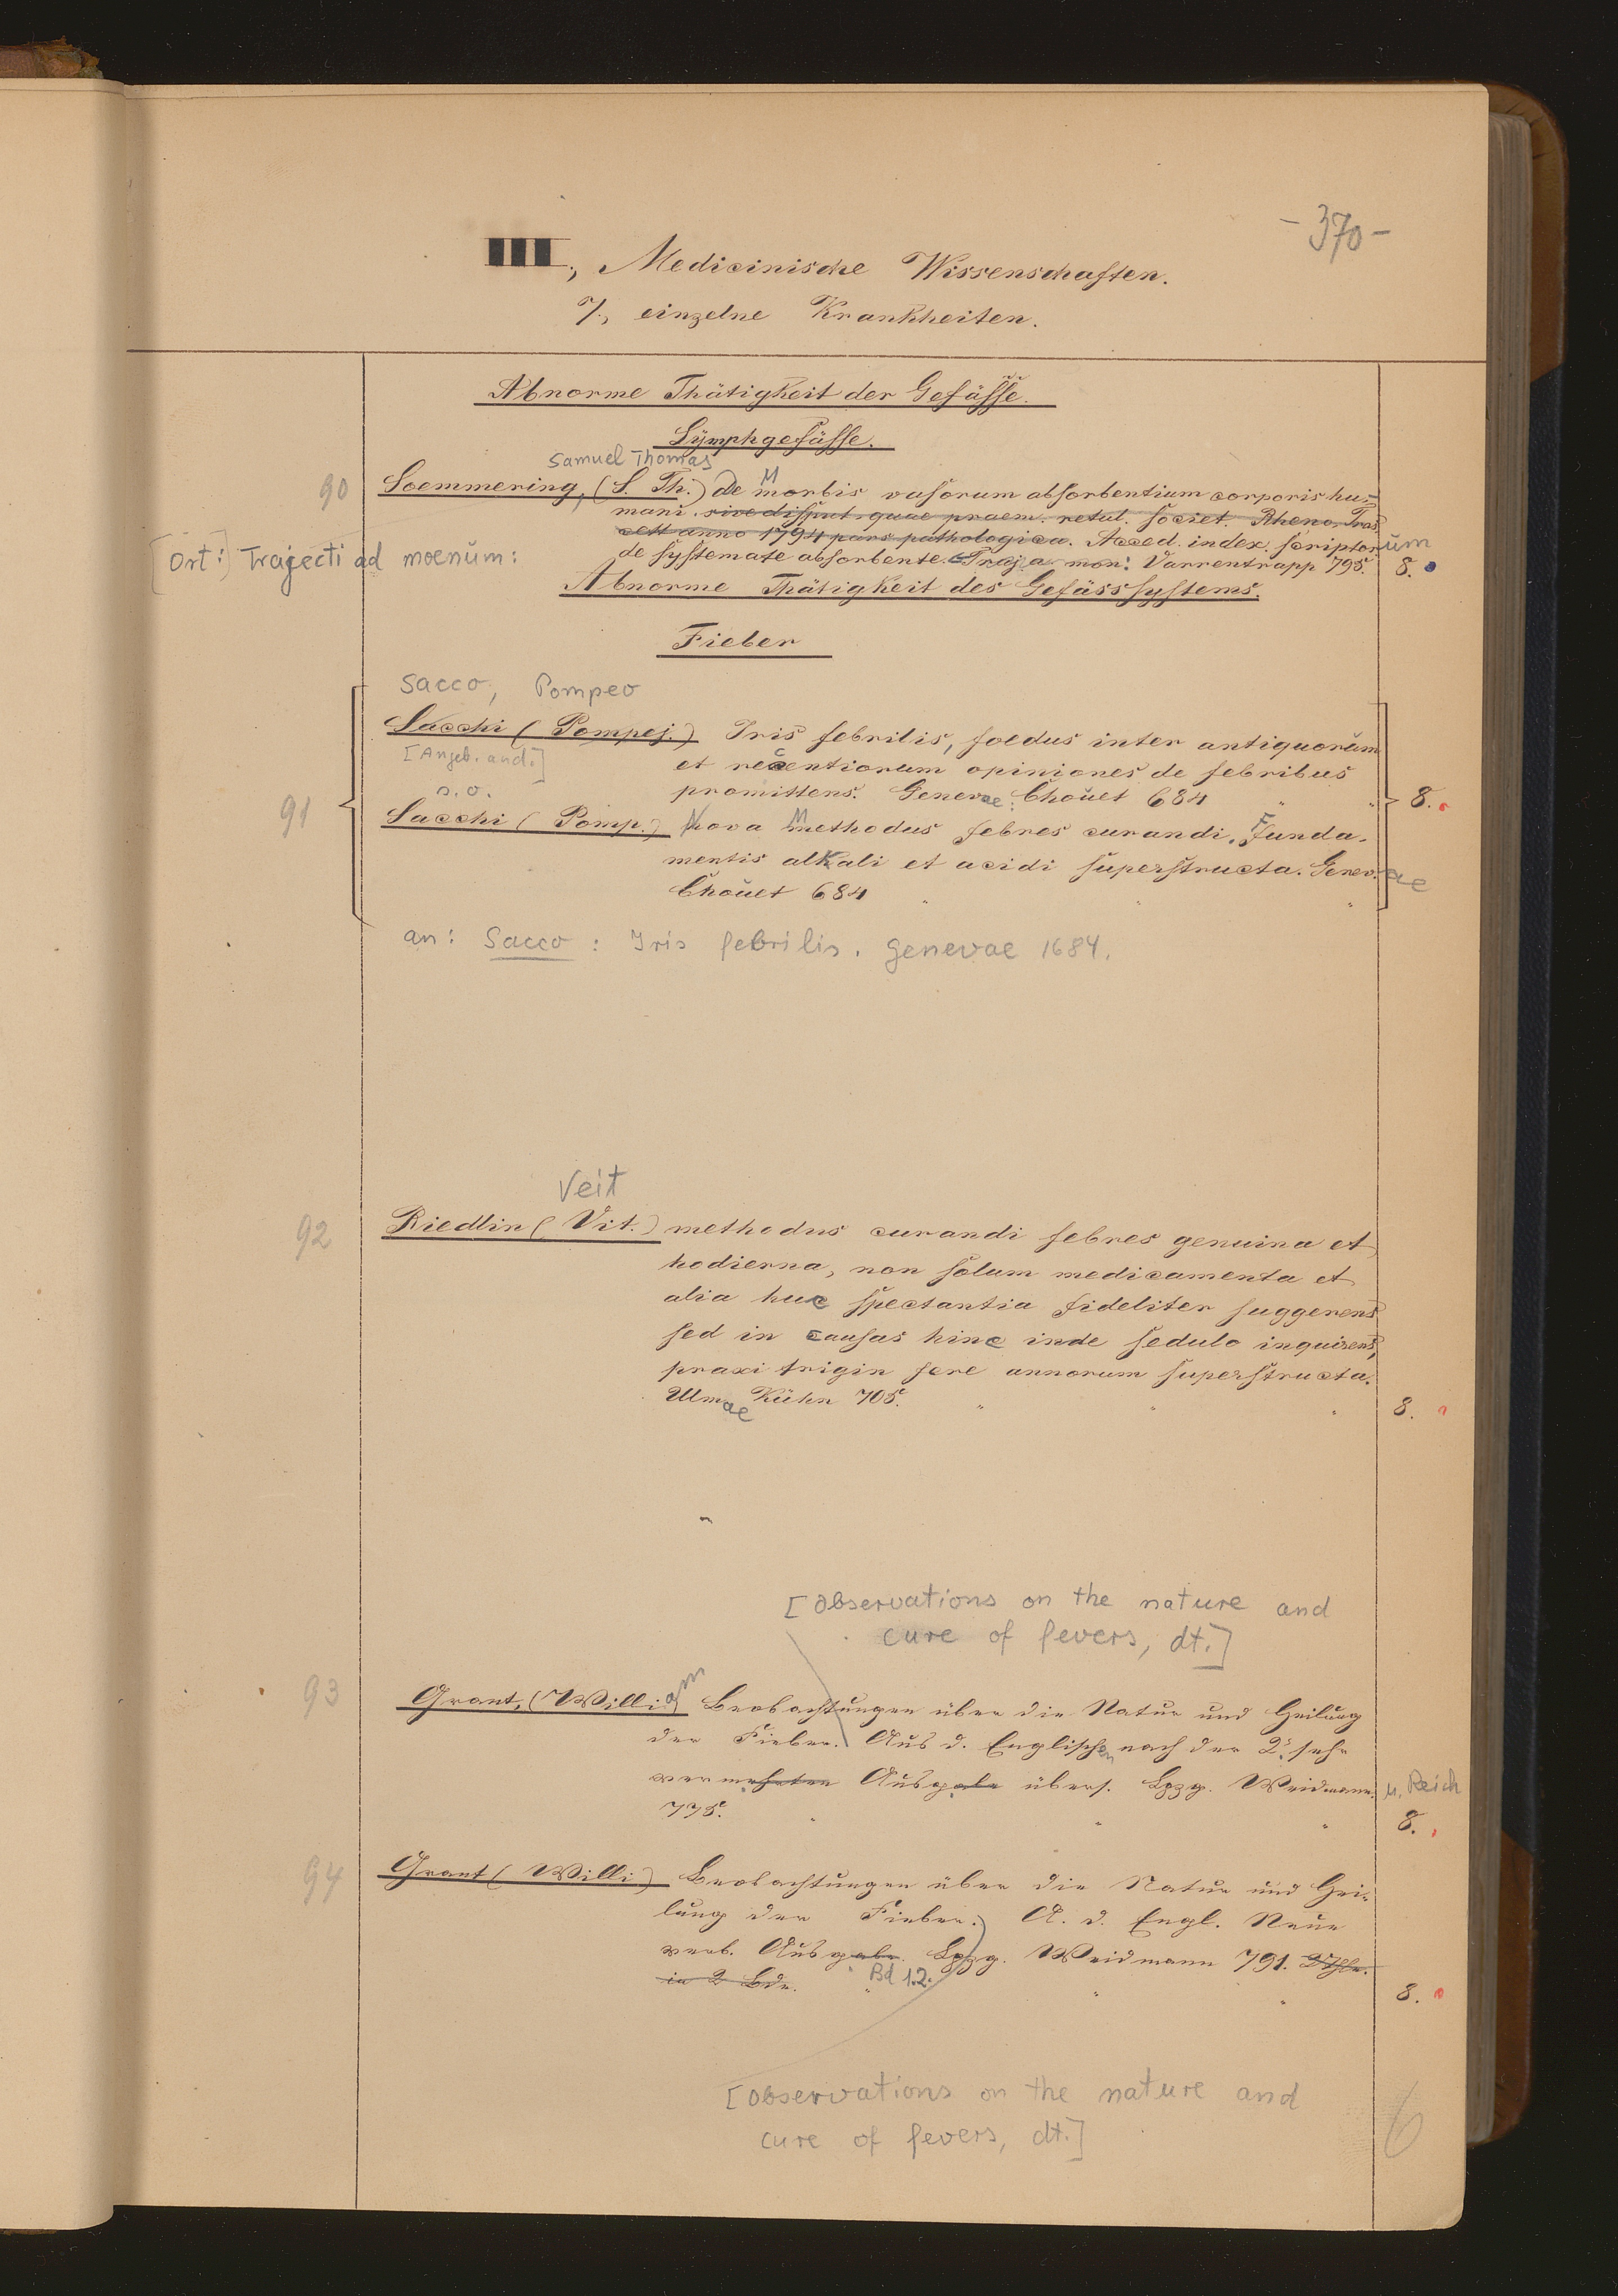 - 370 -
III., Medicinische Wissenschaften.
7., einzelne Krankheiten.
Abnorme Thätigkeit der Gefäſſe.
Lÿmphgefäſſe.
Samuel Thomas
90 Soemmering, (S. Th.) De Morbis vaſorum abſorbentium corporis hu-
mani. sive diſput. quae praem. retul. ſociet. Rheno Traj.
cett anno 1794 pars pathologica. Acced. index. ſcriptorum
[Ort:] Trajecti ad moenum: de ſyſtemate abſorbente. Traj. a. moen: Varrentrapp 795. 8.
Abnorme Thätigkeit des Gefässſyſtems.
Fieber
Sacco, Pompeo
91 Sacchi (Pompej.) Iris febrilis, foedus inter antiquorum
[Angeb. and.] et recentiorum opiniones de febribus
promittens. Genevae: Choüet 684 " " 8.
s. o.
Sacchi (Pomp.) Nova Methodus febres curandi, Funda-
mentis alkali et acidi ſuperſtructa. Genevae
Choüet 684 " " "
an: Sacco: Iris febrilis. Genevae 1684.
Veit
92 Riedlin (Vit.) methodus curandi febres genuina et
hodierna, non ſolum medicamenta et
alia huc ſpectantia fideliter ſuggerens
ſed in causas hinc inde ſedulo inquirens,
praxi trigin fere annorum ſuperſtructa.
Ulmae Kühn 705. " " " 8.
[Observations on the nature and
cure of fevers, dt.]
93 Grant, (William) Beobachtungen über die Natur und Heilung
der Fieber. Aus d. Englischen nach der 2. sehr
vermehrten Ausgabe übers. Lpzg. Weidmann. u. Reich
775. " " " 8.
94 Grant (Willi) Beobachtungen über die Natur und Hei-
lung der Fieber. A. d. Engl. Neue
verb. Ausgabe. Lpzg. Weidmann 791. 2 Thle.
in 2 Bde. Bd 1.2. " " " 8.
[Observations on the nature and
cure of fevers, dt.]
6